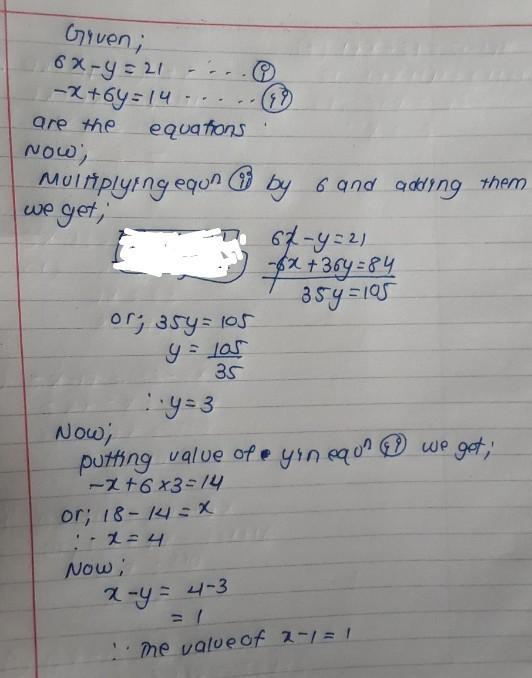 Given;
6x-y=21 ----- (i)
-x+6y=14 ------ (ii)
are the equations.
Now;
Multiplying equn (ii) by 6 and adding them
we get;
6x-y=21
-6x+36y=84
35y=105
or; 35y=105
y = 105/35
∴ y=3
Now;
putting value of y in equn (ii) we get;
-x+6×3=14
or; 18-14=x
∴ x=4
Now;
x-y= 4-3
= 1
∴ The value of x-1=1